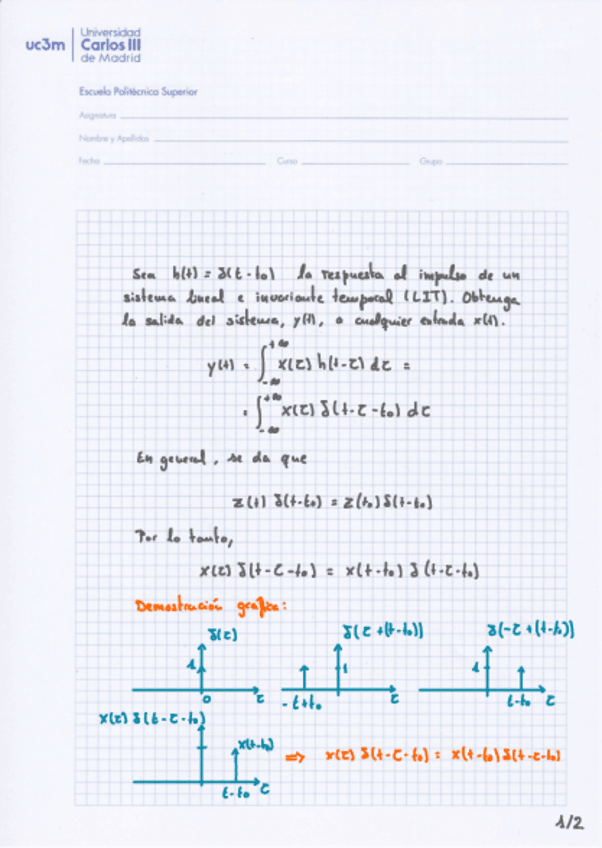 uc3m
Universidad
Carlos III
de Madrid
Escuela Politécnica Superior
Asignatura
Nombre y Apellidos
Fecha Curso Grupo
Sea h(t) = δ(t - t₀) la respuesta al impulso de un
sistema lineal e invariante temporal (LIT). Obtenga
la salida del sistema, y(t), a cualquier entrada x(t).
y(t) = ∫_{-∞}^{+∞} x(τ) h(t-τ) dτ =
= ∫_{-∞}^{+∞} x(τ) δ(t-τ-t₀) dτ
En general, se da que
z(t) δ(t-t₀) = z(t₀) δ(t-t₀)
Por lo tanto,
x(τ) δ(t-τ-t₀) = x(t-t₀) δ(t-τ-t₀)
Demostración gráfica:
δ(τ) δ(τ+(t-t₀)) δ(-τ+(t-t₀))
1 1 1
0 τ -t+t₀ τ t-t₀ τ
x(τ) δ(t-τ-t₀)
x(t-t₀) ⇒ x(τ) δ(t-τ-t₀) = x(t-t₀) δ(t-τ-t₀)
t-t₀ τ
1/2